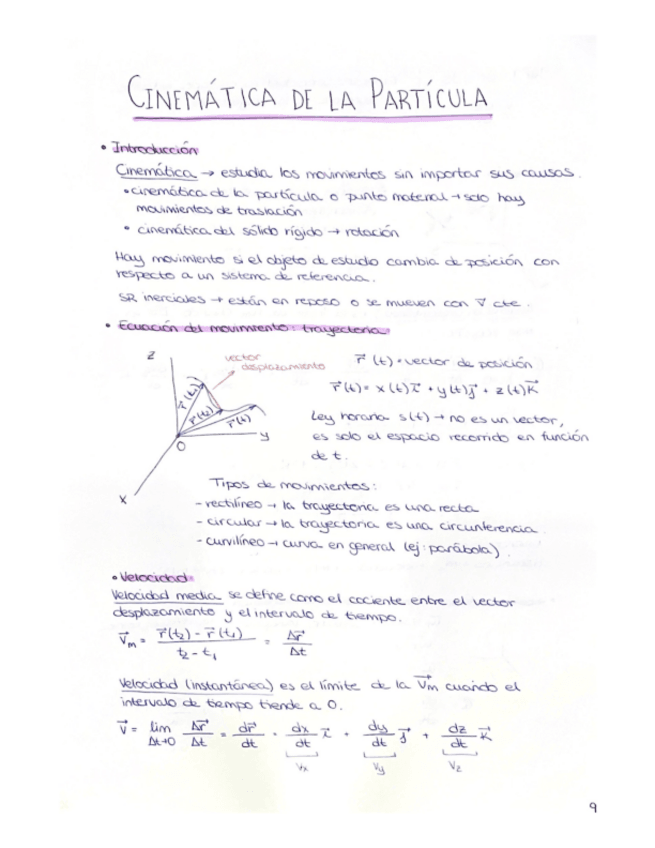 CINEMÁTICA DE LA PARTÍCULA
• Introducción
Cinemática → estudia los movimientos sin importar sus causas.
• cinemática de la partícula o punto material → solo hay
movimientos de traslación
• cinemática del sólido rígido → rotación
Hay movimiento si el objeto de estudio cambia de posición con
respecto a un sistema de referencia.
SR inerciales → están en reposo o se mueven con v⃗ cte.
• Ecuación del movimiento: trayectoria
z
vector
desplazamiento
r⃗(t₁)
r⃗(t₂)
r⃗(t)
O
y
x
r⃗(t) = vector de posición
r⃗(t) = x(t)i⃗ + y(t)j⃗ + z(t)k⃗
Ley horaria s(t) → no es un vector,
es solo el espacio recorrido en función
de t.
Tipos de movimientos:
- rectilíneo → la trayectoria es una recta
- circular → la trayectoria es una circunferencia
- curvilíneo → curva en general (ej: parábola).
• Velocidad:
Velocidad media se define como el cociente entre el vector
desplazamiento y el intervalo de tiempo.
v⃗m = (r⃗(t₂) - r⃗(t₁)) / (t₂ - t₁) = Δr⃗ / Δt
Velocidad (instantánea) es el límite de la v⃗m cuando el
intervalo de tiempo tiende a 0.
v⃗ = lim Δt→0 Δr⃗/Δt = dr⃗/dt = dx/dt i⃗ + dy/dt j⃗ + dz/dt k⃗
vx vy vz
9